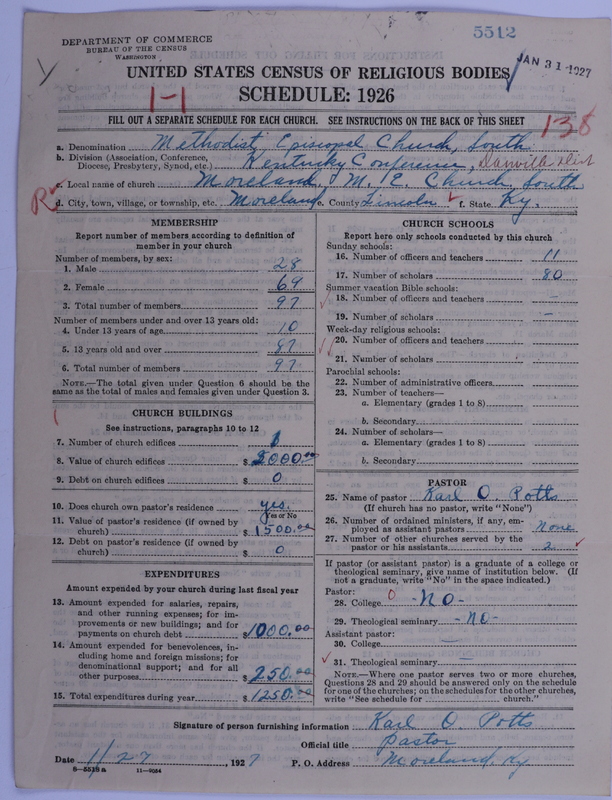 5512
DEPARTMENT OF COMMERCE
BUREAU OF THE CENSUS
WASHINGTON
JAN 31 1927
UNITED STATES CENSUS OF RELIGIOUS BODIES
SCHEDULE: 1926
1-1
FILL OUT A SEPARATE SCHEDULE FOR EACH CHURCH. SEE INSTRUCTIONS ON THE BACK OF THIS SHEET
138
a. Denomination Methodist Episcopal Church, South
b. Division (Association, Conference, Diocese, Presbytery, Synod, etc.) Kentucky Conference, Danville Dist
c. Local name of church Moreland M. E. Church, South
R
d. City, town, village, or township, etc. Moreland e. County Lincoln f. State Ky.
MEMBERSHIP
Report number of members according to definition of
member in your church
Number of members, by sex:
1. Male 28
2. Female 69
3. Total number of members 97
Number of members under and over 13 years old:
4. Under 13 years of age 10
5. 13 years old and over 87
6. Total number of members 97
NOTE.—The total given under Question 6 should be
same as the total of males and females given under Question 3.
CHURCH BUILDINGS
See instructions, paragraphs 10 to 12
7. Number of church edifices 1
8. Value of church edifices $ 2000.00
9. Debt on church edifices $ 0
10. Does church own pastor's residence yes.
Yes or No
11. Value of pastor's residence (if owned by
church) $ 1500.00
12. Debt on pastor's residence (if owned by
church) $ 0
EXPENDITURES
Amount expended by your church during last fiscal year
13. Amount expended for salaries, repairs,
and other running expenses; for im-
provements or new buildings; and for
payments on church debt $ 1000.00
14. Amount expended for benevolences, in-
cluding home and foreign missions; for
denominational support; and for all
other purposes $ 250.00
15. Total expenditures during year $ 1250.00
CHURCH SCHOOLS
Report here only schools conducted by this church
Sunday schools:
16. Number of officers and teachers 11
17. Number of scholars 80
Summer vacation Bible schools:
18. Number of officers and teachers –
19. Number of scholars –
Week-day religious schools:
20. Number of officers and teachers
21. Number of scholars
Parochial schools:
22. Number of administrative officers
23. Number of teachers—
a. Elementary (grades 1 to 8)
b. Secondary
24. Number of scholars—
a. Elementary (grades 1 to 8)
b. Secondary
PASTOR
25. Name of pastor Karl O. Potts
(If church has no pastor, write "None")
26. Number of ordained ministers, if any, em-
ployed as assistant pastors None
27. Number of other churches served by the
pastor or his assistants 2
If pastor (or assistant pastor) is a graduate of a college or
theological seminary, give name of institution below. (If
not a graduate, write "No" in the space indicated.)
Pastor:
28. College 0 -NO-
29. Theological seminary -NO-
Assistant pastor:
30. College —
31. Theological seminary —
NOTE.—Where one pastor serves two or more churches,
Questions 28 and 29 should be answered only on the schedule
for one of the churches; on the schedules for the other churches,
write "See schedule for church."
Signature of person furnishing information Karl O Potts
Official title Pastor
Date 1/27, 1927 P. O. Address Moreland, Ky
8—5518a 11—9034